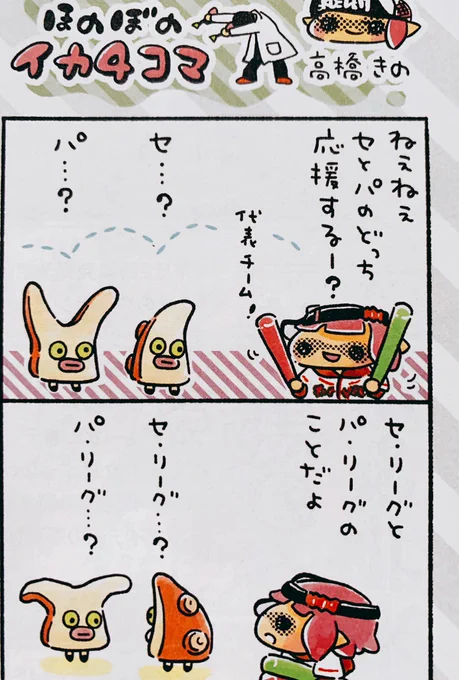 ほのぼの
イカ4コマ
高橋きの
ねぇねぇ
セとパのどっち
応援するー?
代表チーム!
セ…?
パ…?
セ・リーグと
パ・リーグの
ことだよ
セ・リーグ…?
パ・リーグ…?